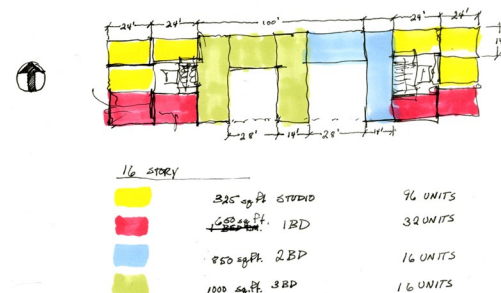 24' 24' 100' 24' 24'
14'
28' 14' 28' 14'
16 STORY
325 sq.ft. STUDIO 96 UNITS
650 sq.ft. 1BD 32 UNITS
850 sq.ft. 2BD 16 UNITS
1000 sq.ft. 3BD 16 UNITS